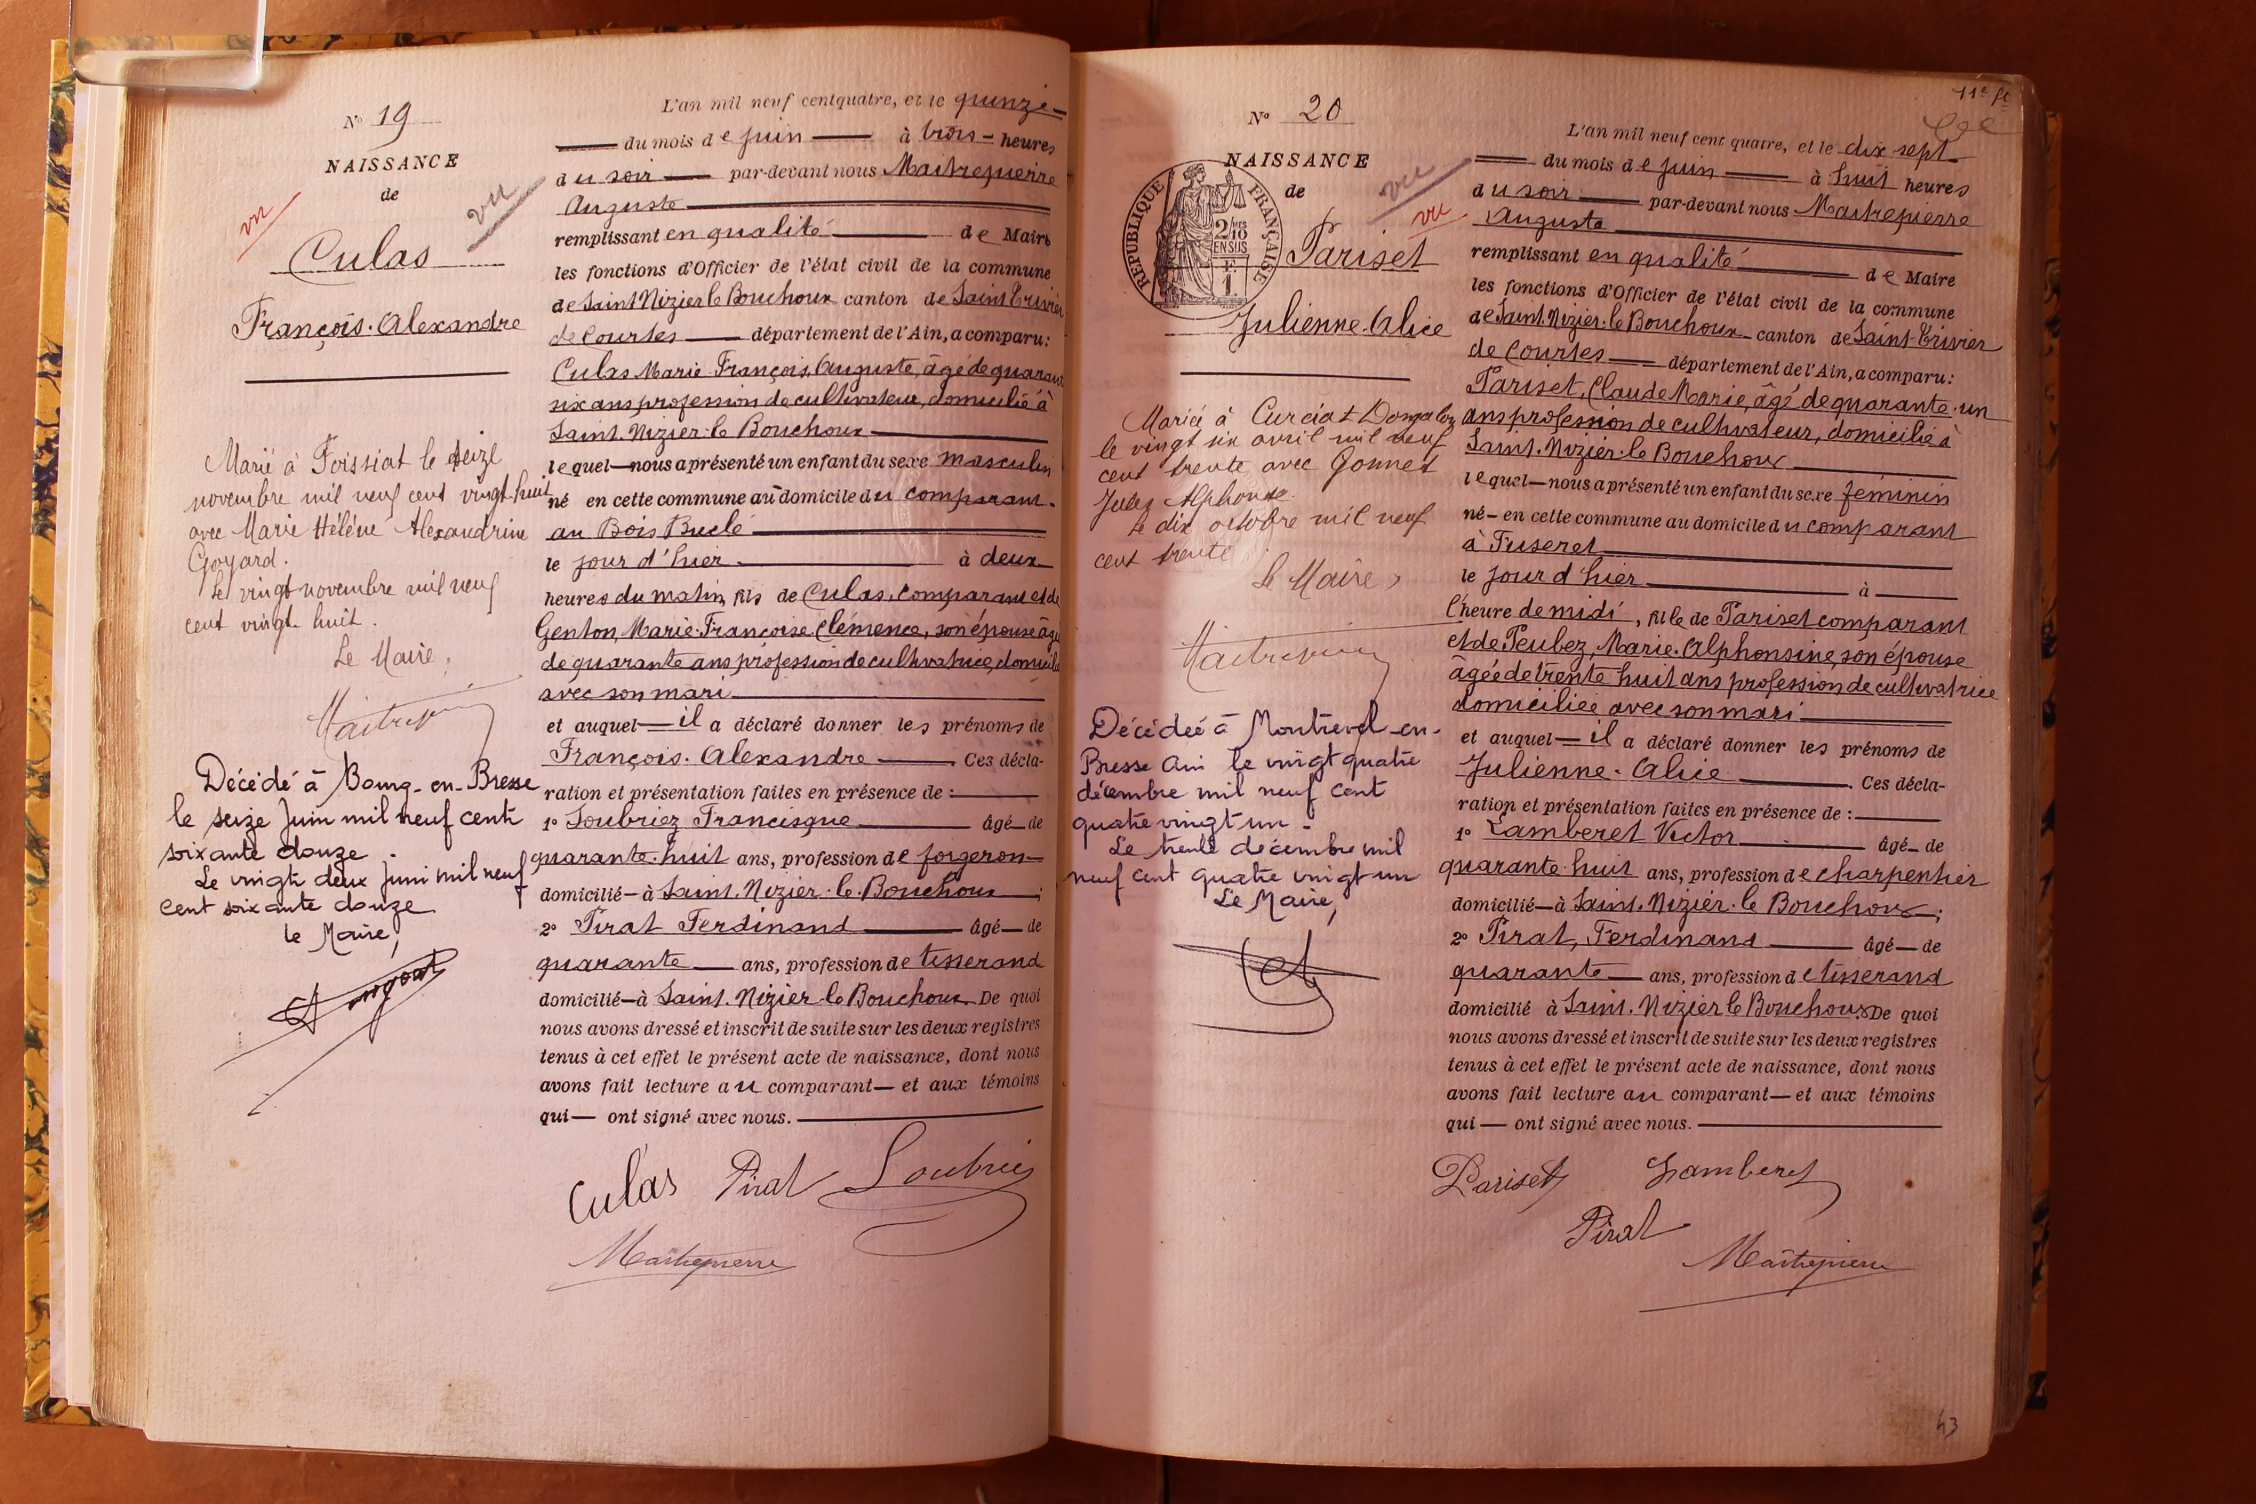 N° 19
NAISSANCE
de
vu
vu
Culas
François. Alexandre
Marié à Foissiat le seize
novembre mil neuf cent vingt-huit
avec Marie Hélène Alexandrine
Goyard.
Le vingt novembre mil neuf
cent vingt-huit.
Le Maire,
Maitrepierre
Décédé à Bourg-en-Bresse
le seize Juin mil neuf cent
soixante douze.
Le vingt deux Juin mil neuf
cent soixante douze
le Maire,
L'an mil neuf cent quatre, et le quinze
du mois de juin à trois heures
du soir par-devant nous Maitrepierre
Auguste
remplissant en qualité de Maire
les fonctions d'Officier de l'état civil de la commune
de Saint Nizier le Bouchoux canton de Saint Trivier
de Courtes département de l'Ain, a comparu:
Culas Marie François Auguste, âgé de quarante
six ans profession de cultivateur, domicilié à
Saint. Nizier le Bouchoux
lequel nous a présenté un enfant du sexe masculin
né en cette commune au domicile du comparant.
au Bois Buclé
le jour d'hier à deux
heures du matin, fils de Culas, comparant et de
Genton, Marie-Françoise Clémence, son épouse âgée
de quarante ans profession de cultivatrice, domiciliée
avec son mari
et auquel il a déclaré donner les prénoms de
François. Alexandre . Ces décla-
ration et présentation faites en présence de :
1° Loubriez Francisque âgé de
quarante-huit ans, profession de forgeron
domicilié à Saint. Nizier. le. Bouchoux ;
2° Pirat Ferdinand âgé de
quarante ans, profession de tisserand
domicilié à Saint. Nizier. le Bouchoux De quoi
nous avons dressé et inscrit de suite sur les deux registres
tenus à cet effet le présent acte de naissance, dont nous
avons fait lecture au comparant et aux témoins
qui ont signé avec nous.
Culas Pirat Loubriez
Maitrepierre
11e ft
N° 20
NAISSANCE
de
vu
vu
RÉPUBLIQUE FRANÇAISE
2/10
EN SUS
1 F.
Pariset
Julienne. Alice
Mariée à Curciat Dongalon
le vingt six avril mil neuf
cent trente avec Gonnet
Jules Alphonse.
Le dix octobre mil neuf
cent trente.
Le Maire,
Maitrepierre
Décédée à Montrevel-en-
Bresse Ain le vingt quatre
décembre mil neuf cent
quatre vingt un.
Le trente décembre mil
neuf cent quatre vingt un
Le Maire,
L'an mil neuf cent quatre, et le dix sept
du mois de juin à huit heures
du soir par-devant nous Maitrepierre
Auguste
remplissant en qualité de Maire
les fonctions d'Officier de l'état civil de la commune
de Saint. Nizier. le Bouchoux canton de Saint-Trivier
de Courtes département de l'Ain, a comparu:
Pariset, Claude Marie, âgé de quarante-un
ans profession de cultivateur, domicilié à
Saint. Nizier. le Bouchoux
lequel nous a présenté un enfant du sexe féminin
né en cette commune au domicile du comparant
à Fuseret
le jour d'hier à
l'heure de midi, fille de Pariset comparant
et de Peubez, Marie. Alphonsine, son épouse
âgée de trente huit ans profession de cultivatrice
domiciliée avec son mari
et auquel il a déclaré donner les prénoms de
Julienne. Alice . Ces décla-
ration et présentation faites en présence de :
1° Lamberet Victor âgé de
quarante-huit ans, profession de charpentier
domicilié à Saint. Nizier. le Bouchoux ;
2° Pirat, Ferdinand âgé de
quarante ans, profession de tisserand
domicilié à Saint. Nizier le Bouchoux De quoi
nous avons dressé et inscrit de suite sur les deux registres
tenus à cet effet le présent acte de naissance, dont nous
avons fait lecture au comparant et aux témoins
qui ont signé avec nous.
Pariset Lamberet
Pirat
Maitrepierre
43